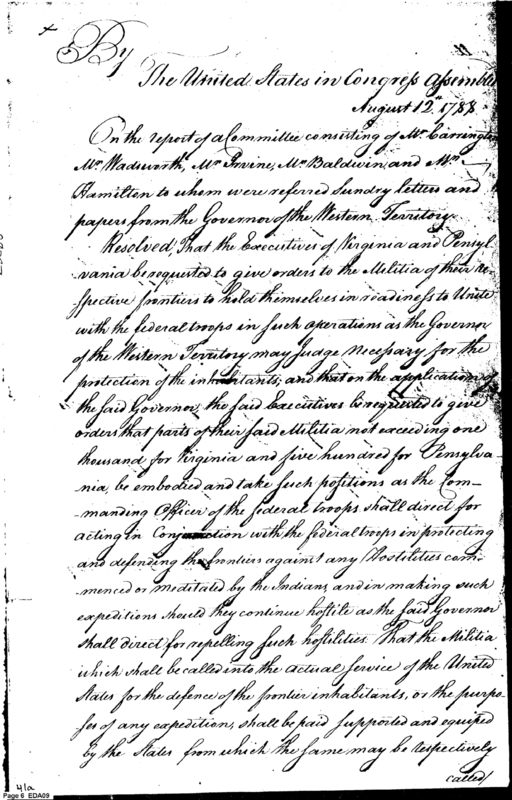 By
The United States in Congress Assembled
August 12th 1788
On the report of a Committee consisting of Mr. Carrington
Mr. Wadsworth, Mr. Irvine, Mr. Baldwin and Mr.
Hamilton to whom were referred Sundry letters and
papers from the Governor of the Western Territory.
Resolved, That the Executives of Virginia and Pensyl-
vania be requested to give orders to the Militia of their re-
spective frontiers to hold themselves in readiness to Unite
with the federal troops in such operations as the Governor
of the Western Territory may judge necessary for the
protection of the inhabitants, and that on the application of
the said Governor, the said Executives be requested to give
orders that parts of their said Militia not exceeding one
thousand for Virginia and five hundred for Pensylva-
nia, be embodied and take such positions as the Com-
manding Officer of the federal troops shall direct for
acting in Conjunction with the federal troops in protecting
and defending the frontiers against any Hostilities com-
menced or meditated by the Indians, and in making such
expeditions should they continue hostile as the said Governor
shall direct for repelling such hostilities. That the Militia
which shall be called into the actual service of the United
States for the defence of the frontier inhabitants, or the purpo-
ses of any expedition, shall be paid supported and equiped
by the States from which the same may be respectively
called/
41a
Page 6 EDA09